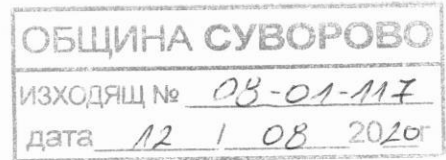 ОБЩИНА СУВОРОВО
ИЗХОДЯЩ № 08-01-117
дата 12 / 08 2020г